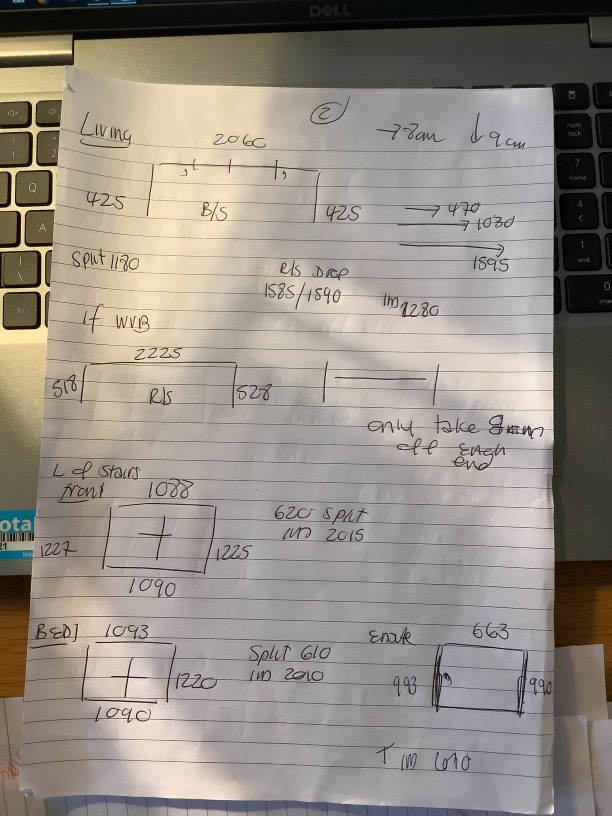 DELL
② →8cm ↓9cm
Living
2060
425 B/S 425
→ 470
→ 1030
1595
Split 1180
R/S DROP
1585/1590
1m 1280
If WVB
2225
518 R/S 528
only take
off each
end
L of stairs
front 1088
1227 1225
1090
620 split
1m 2015
BED 1 1093
1220
1090
Split 610
1m 2010
663
993 990